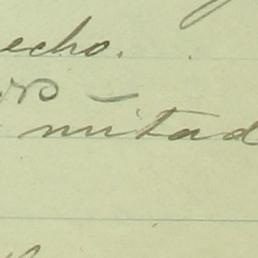 echo.
mitad